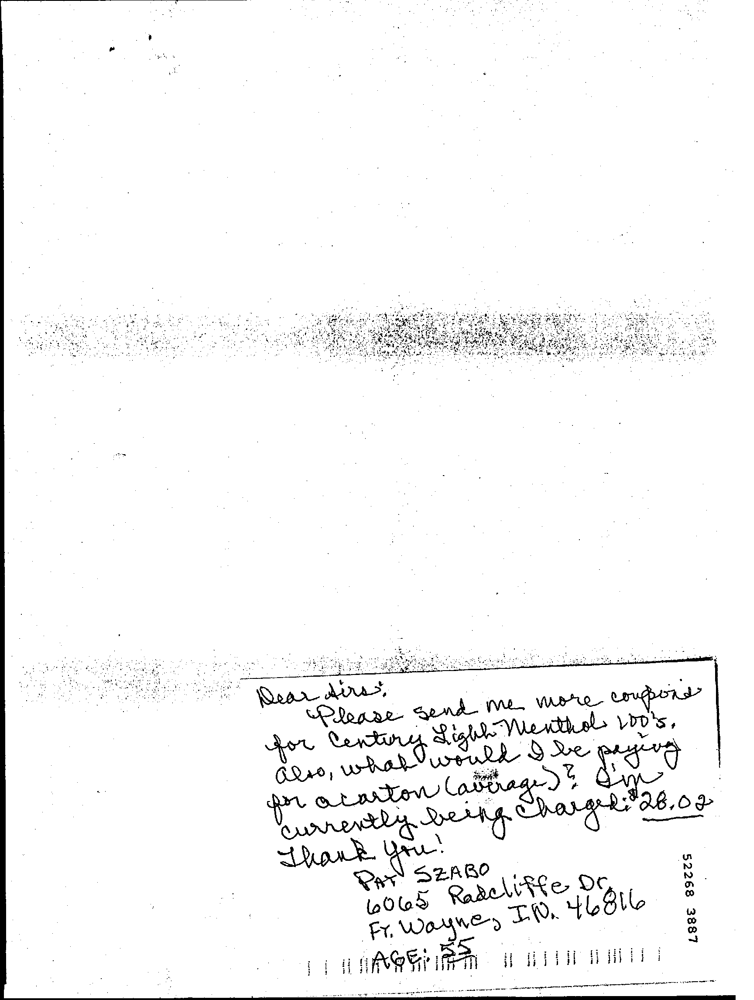 Dear Sirs:
Please send me more coupons
for Century Light Menthol 100's.
Also, what would I be paying
for a carton (average)? I'm
currently being charged: $28.02
Thank you!
PAT SZABO
6065 Radcliffe Dr.
Ft. Wayne, IN. 46816
AGE: 55
52268 3887